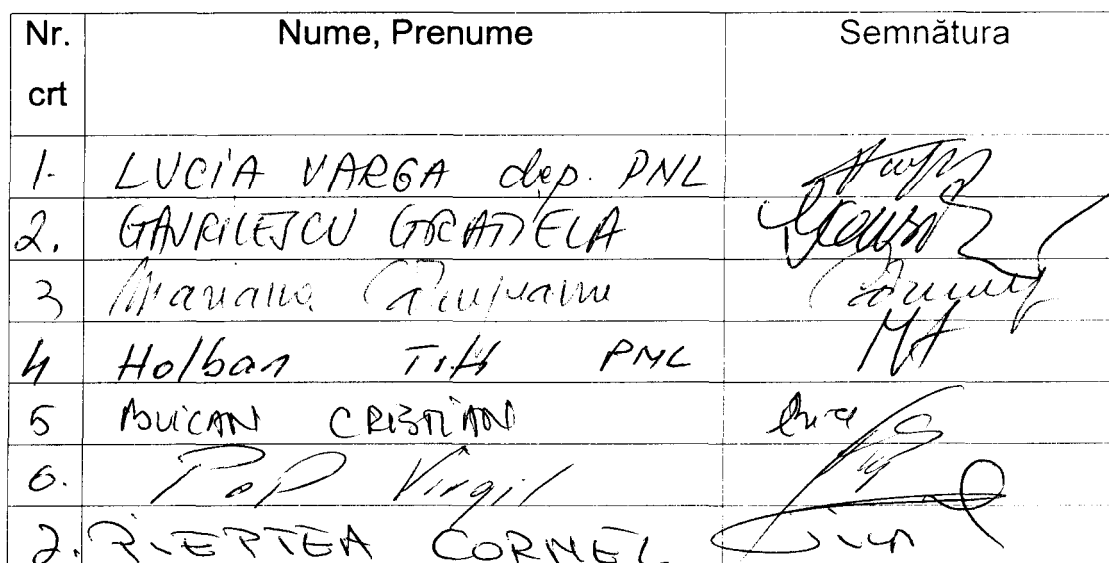 Nr. crt Nume, Prenume Semnătura
1. LUCIA VARGA dep. PNL
2. GAVRILESCU GRAȚIELA
3 Mariana Câmpeanu
4 Holban Titi PNL
5 BUICAN CRISTIAN
6. Pop Virgil
7. PIEPTEA CORNEL